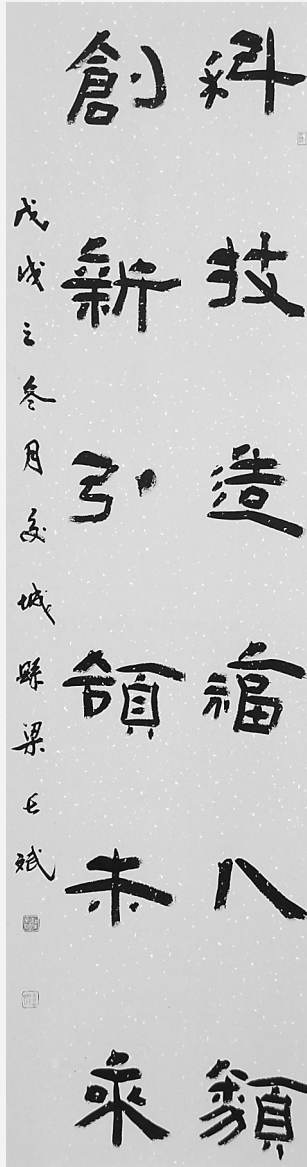 科技造福人類
創新引領未來
戊戌之冬月交城縣梁長斌